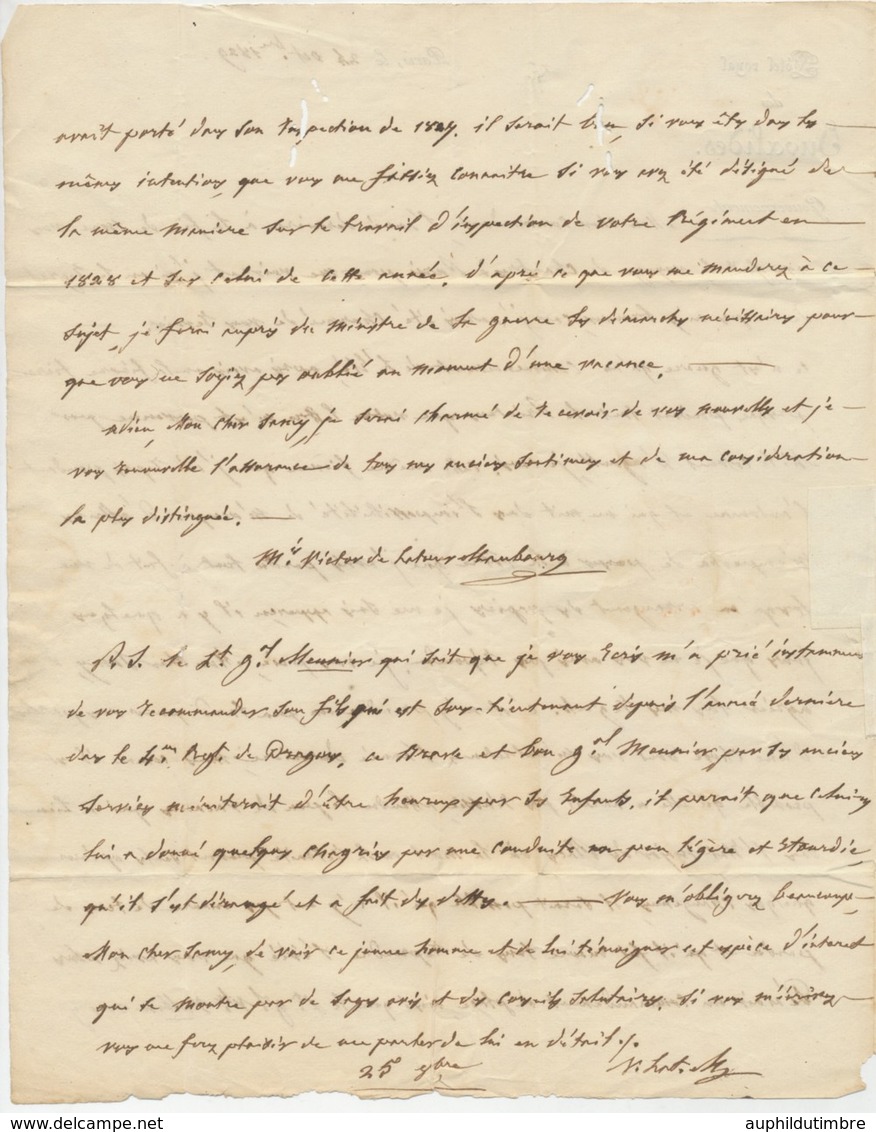 avait porté dans son inspection de 1827. il serait bien, si vous êtes dans les
mêmes intentions, que vous me fassiez connaitre si vous avez été désigné de
la même maniere sur le travail d'inspection de votre Régiment en
1828 et sur celui de cette année. d'après ce que vous me manderez à ce
sujet, je ferai auprès du ministre de la guerre les démarches nécessaires pour
que vous ne soyiez pas oublié au moment d'une vacance.
adieu, Mon cher je serai charmé de recevoir de vos nouvelles et je
vous renouvelle l'assurance de tous mes anciens sentimens et de ma consideration
la plus distinguée.
Mis Victor de Latour Maubourg
P. S. le Lt gal Meunier qui sait que je vous Ecris m'a prié instamment
de vous recommander son fils qui est sous-lieutenant depuis l'année derniere
dans le 4me Regt de Dragons. ce brave et bon gal Meunier par ses anciens
services mériterait d'être heureux par ses Enfants. il parait que celui ci
lui a donné quelques chagrins par une conduite un peu légère et Etourdie,
qu'il s'est dérangé et a fait des dettes. Vous m'obligerez beaucoup,
Mon cher de voir ce jeune homme et de lui témoigner cet espèce d'interet
qui se montre par de sages avis et des conseils salutaires. si vous m'écrivez
vous me ferez plaisir de me parler de lui en détail ./.
25 9bre V. Lat. Mg
auphildutimbre